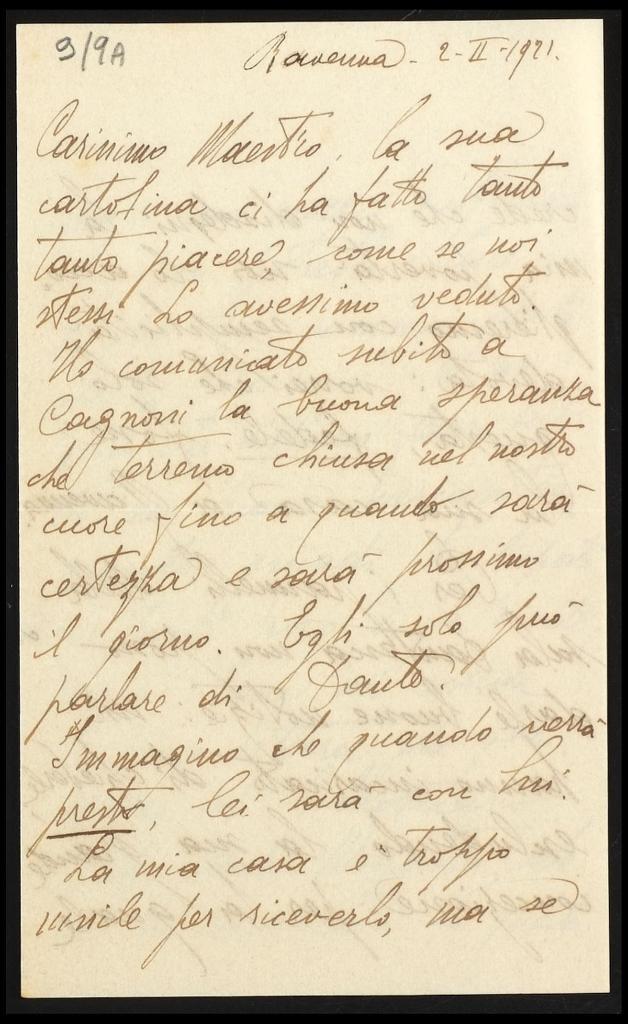 9/9A
Ravenna - 2-II-1921.
Carissimo Maestro, la sua
cartolina ci ha fatto tanto
tanto piacere, come se noi
stessi Lo avessimo veduto.
Ho comunicato subito a
Cagnoni la buona speranza
che terremo chiusa nel nostro
cuore fino a quando sarà
certezza e sarà prossimo
il giorno. Egli solo può
parlare di Dante.
Immagino che quando verrà
presto, lei sarà con lui.
La mia casa è troppo
umile per riceverlo, ma se